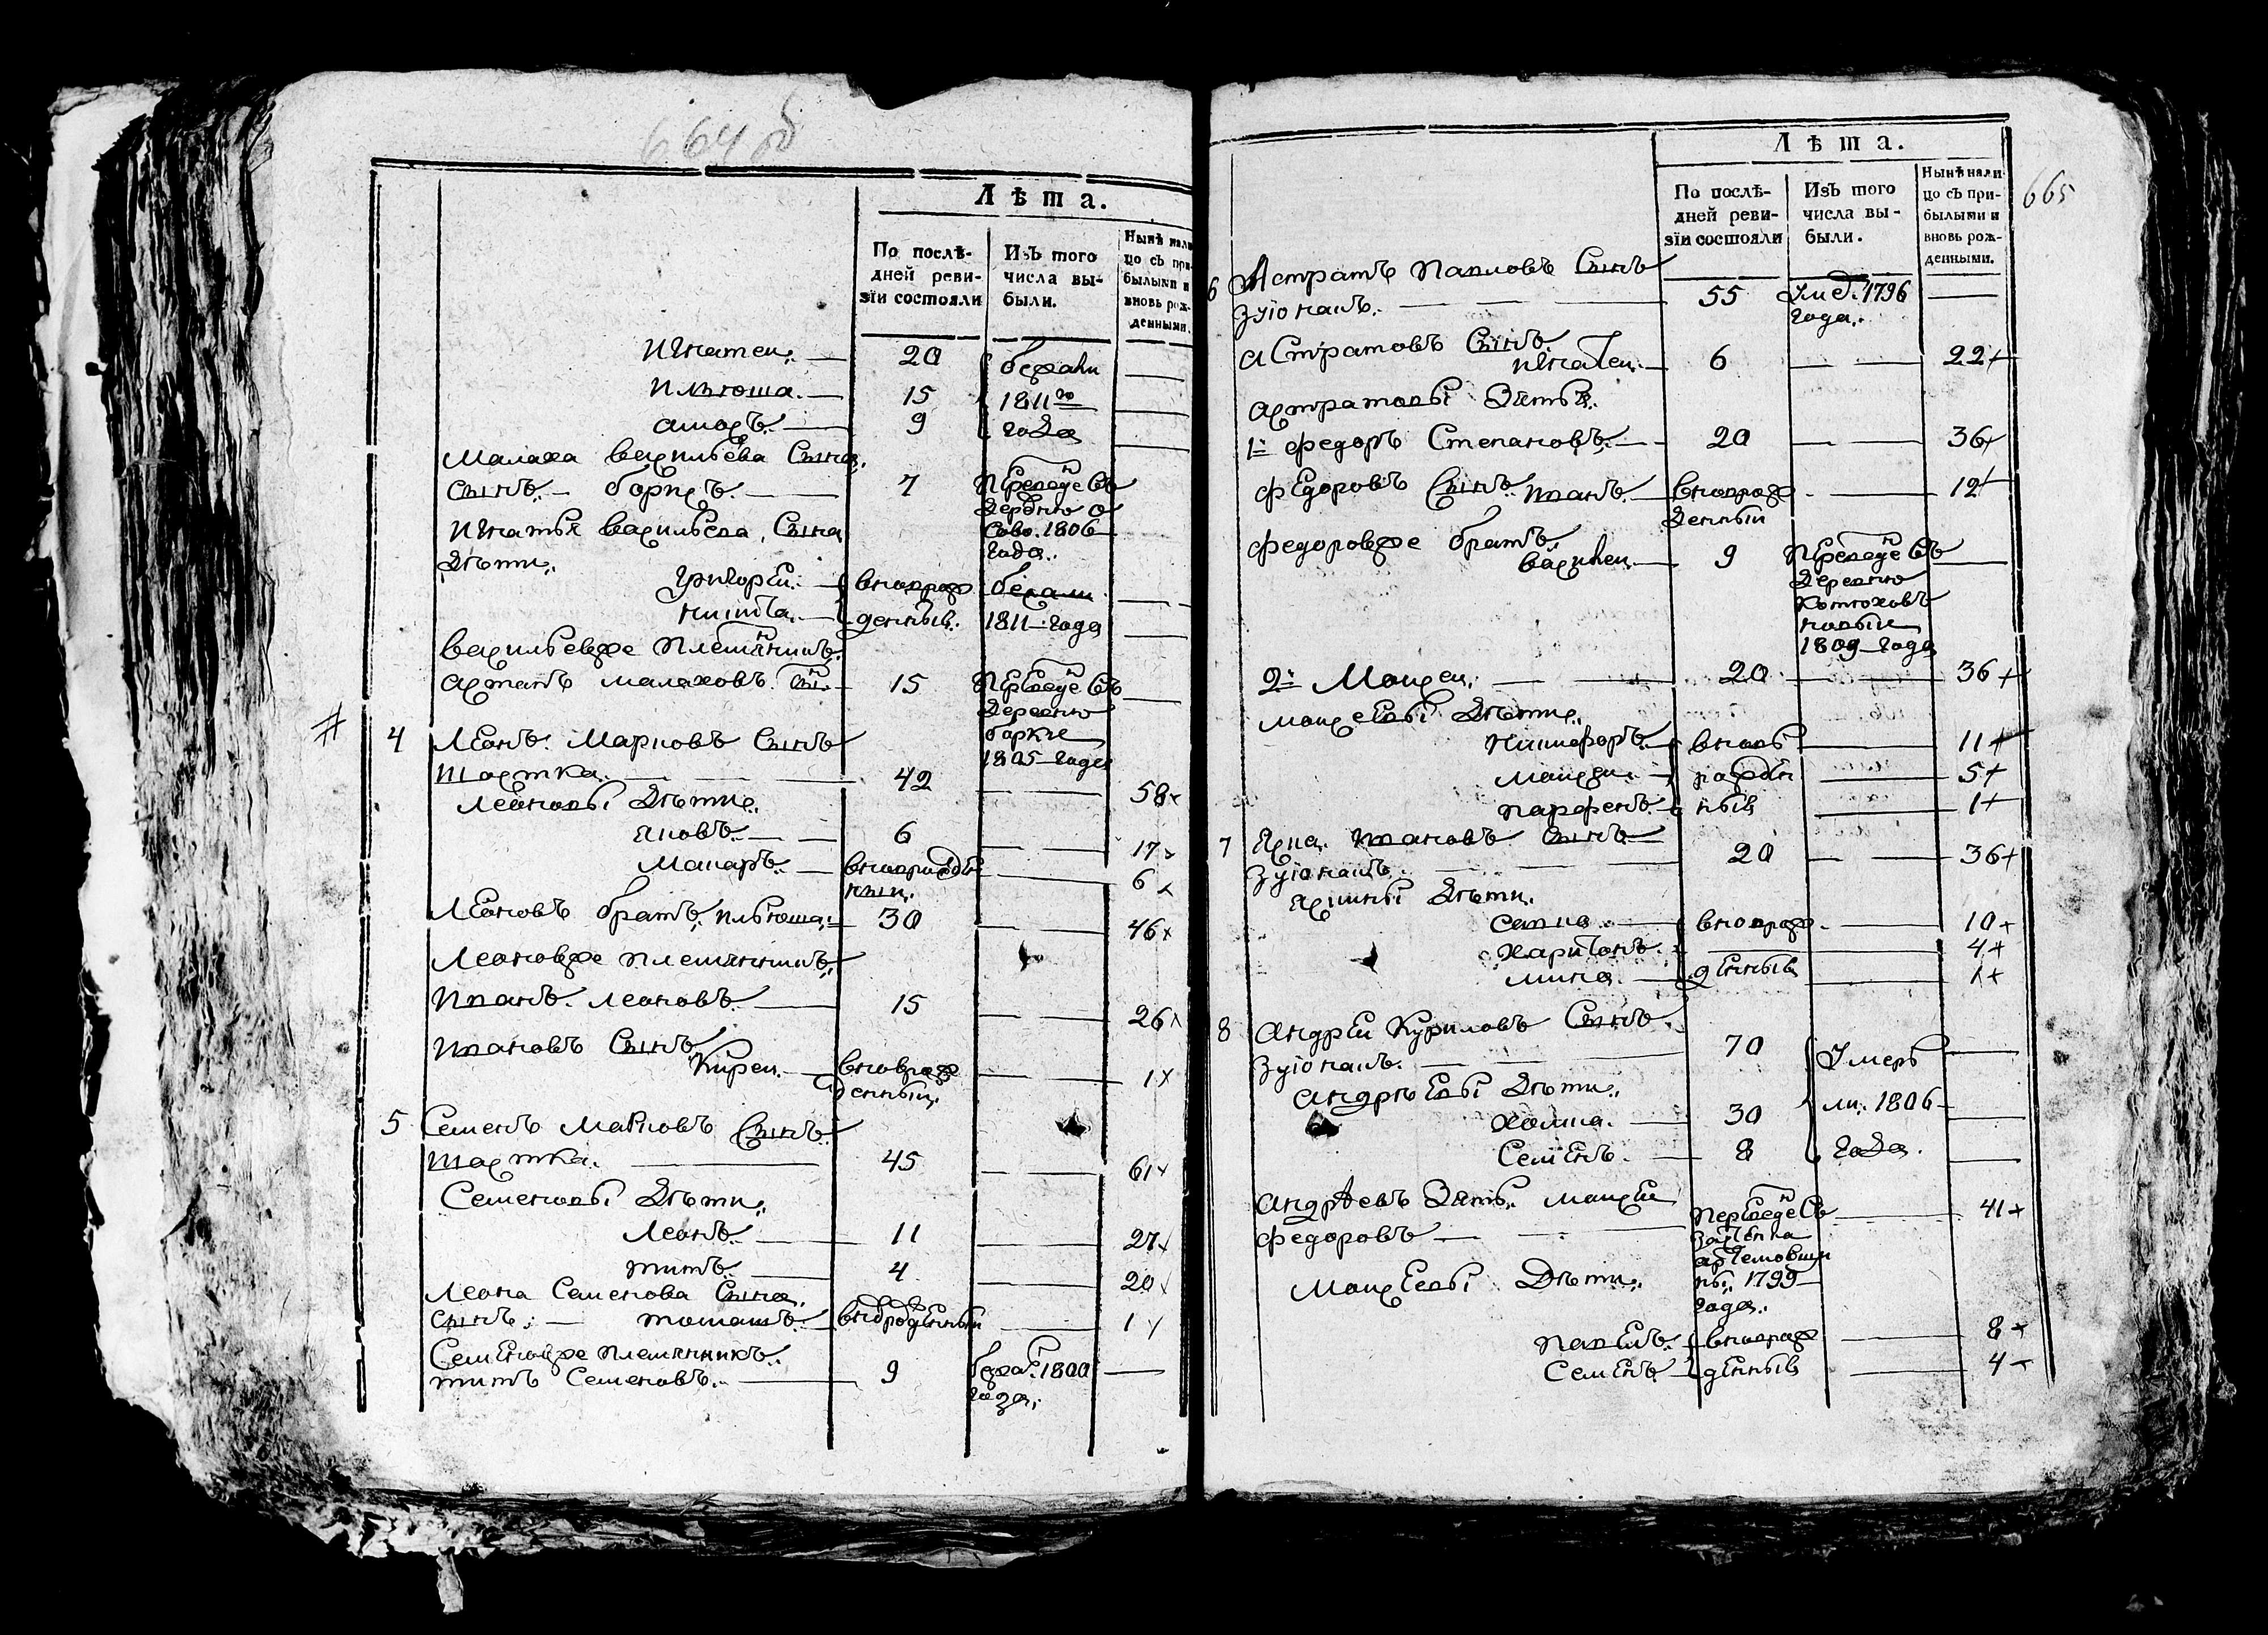 664 об
Лѣта.
По послѣ-
дней реви-
зіи состояли
Изъ того
числа вы-
были.
Нынѣ нали
цо съ при-
былыми и
вновь рож-
денными.
Игнатеи. 20 бежали
Ильюша. 15 1811го
амосъ. 9 года
Малаха васильева Сына.
сынъ борисъ. 7 Переведенъ Въ
деревню
1806
года.
Игнатья васильева Сына
Дѣти.
григореи. вновьрож бежали
никита. денныѣ. 1811 года
василъевже племянникъ.
астапъ малаховъ сынъ 15 Переведенъ Въ
деревню
боркѣ
1805 года
4 Леонъ Марковъ Сынъ
шостка. 42 58
Леоновы Дѣти.
яковъ. 6 17
Макаръ. вновьрожден 6
ныи.
Леоновъ братъ, илъюша. 30 46
Леоновже племянникъ.
Иванъ леоновъ. 15 26
Ивановъ Сынъ
Кирей. вновьрож 1
денныи.
5 Семенъ Марковъ Сынъ.
шостка. 45 61
Семеновы Дѣти.
Леонъ. 11 27
титъ. 4 20
Леона Семенова Сына.
сынъ. томашъ. вновьрожденныи 1
Семеновже племянникъ.
титъ Семеновъ. 9 бежалъ 1800
года.
665
Лѣта.
По послѣ-
дней реви-
зіи состояли
Изъ того
числа вы-
были.
Нынѣ нали
цо съ при-
былыми и
вновь рож-
денными.
6 Астратъ Павловъ Сынъ
зуіонакъ. 55 Умер. 1796
года.
аСтратовъ Сынъ.
игнатеи. 6 22
астратовы Зятья.
1й федоръ Степановъ. 20 36
федоровъ Сынъ иванъ. вновьрож 12
денныи
федоровже братъ.
василеи. 9 Переведенъ Въ
деревню
1809 года
2й Моисеи. 20 36
моисеевы Дѣти.
никифоръ. вновь 11
рожден 5
парфенъ. ныѣ 1
7 ивановъ Сынъ
зуіонакъ. 20 36
Дѣти.
савка. вновьрож 10
Харитонъ. 4
мина. денныѣ 1
8 Андреи Куриловъ Сынъ.
зуіонакъ. 70 Умер
Андрѣевы Дѣти.
хомка. 30 ли. 1806
Семенъ. 8 года.
Андрѣевъ Зять. моисеи Переведенъ 41
федоровъ
1799
года.
Моисеевы Дѣти.
павелъ. вновьрож 8
Семенъ денныѣ 4